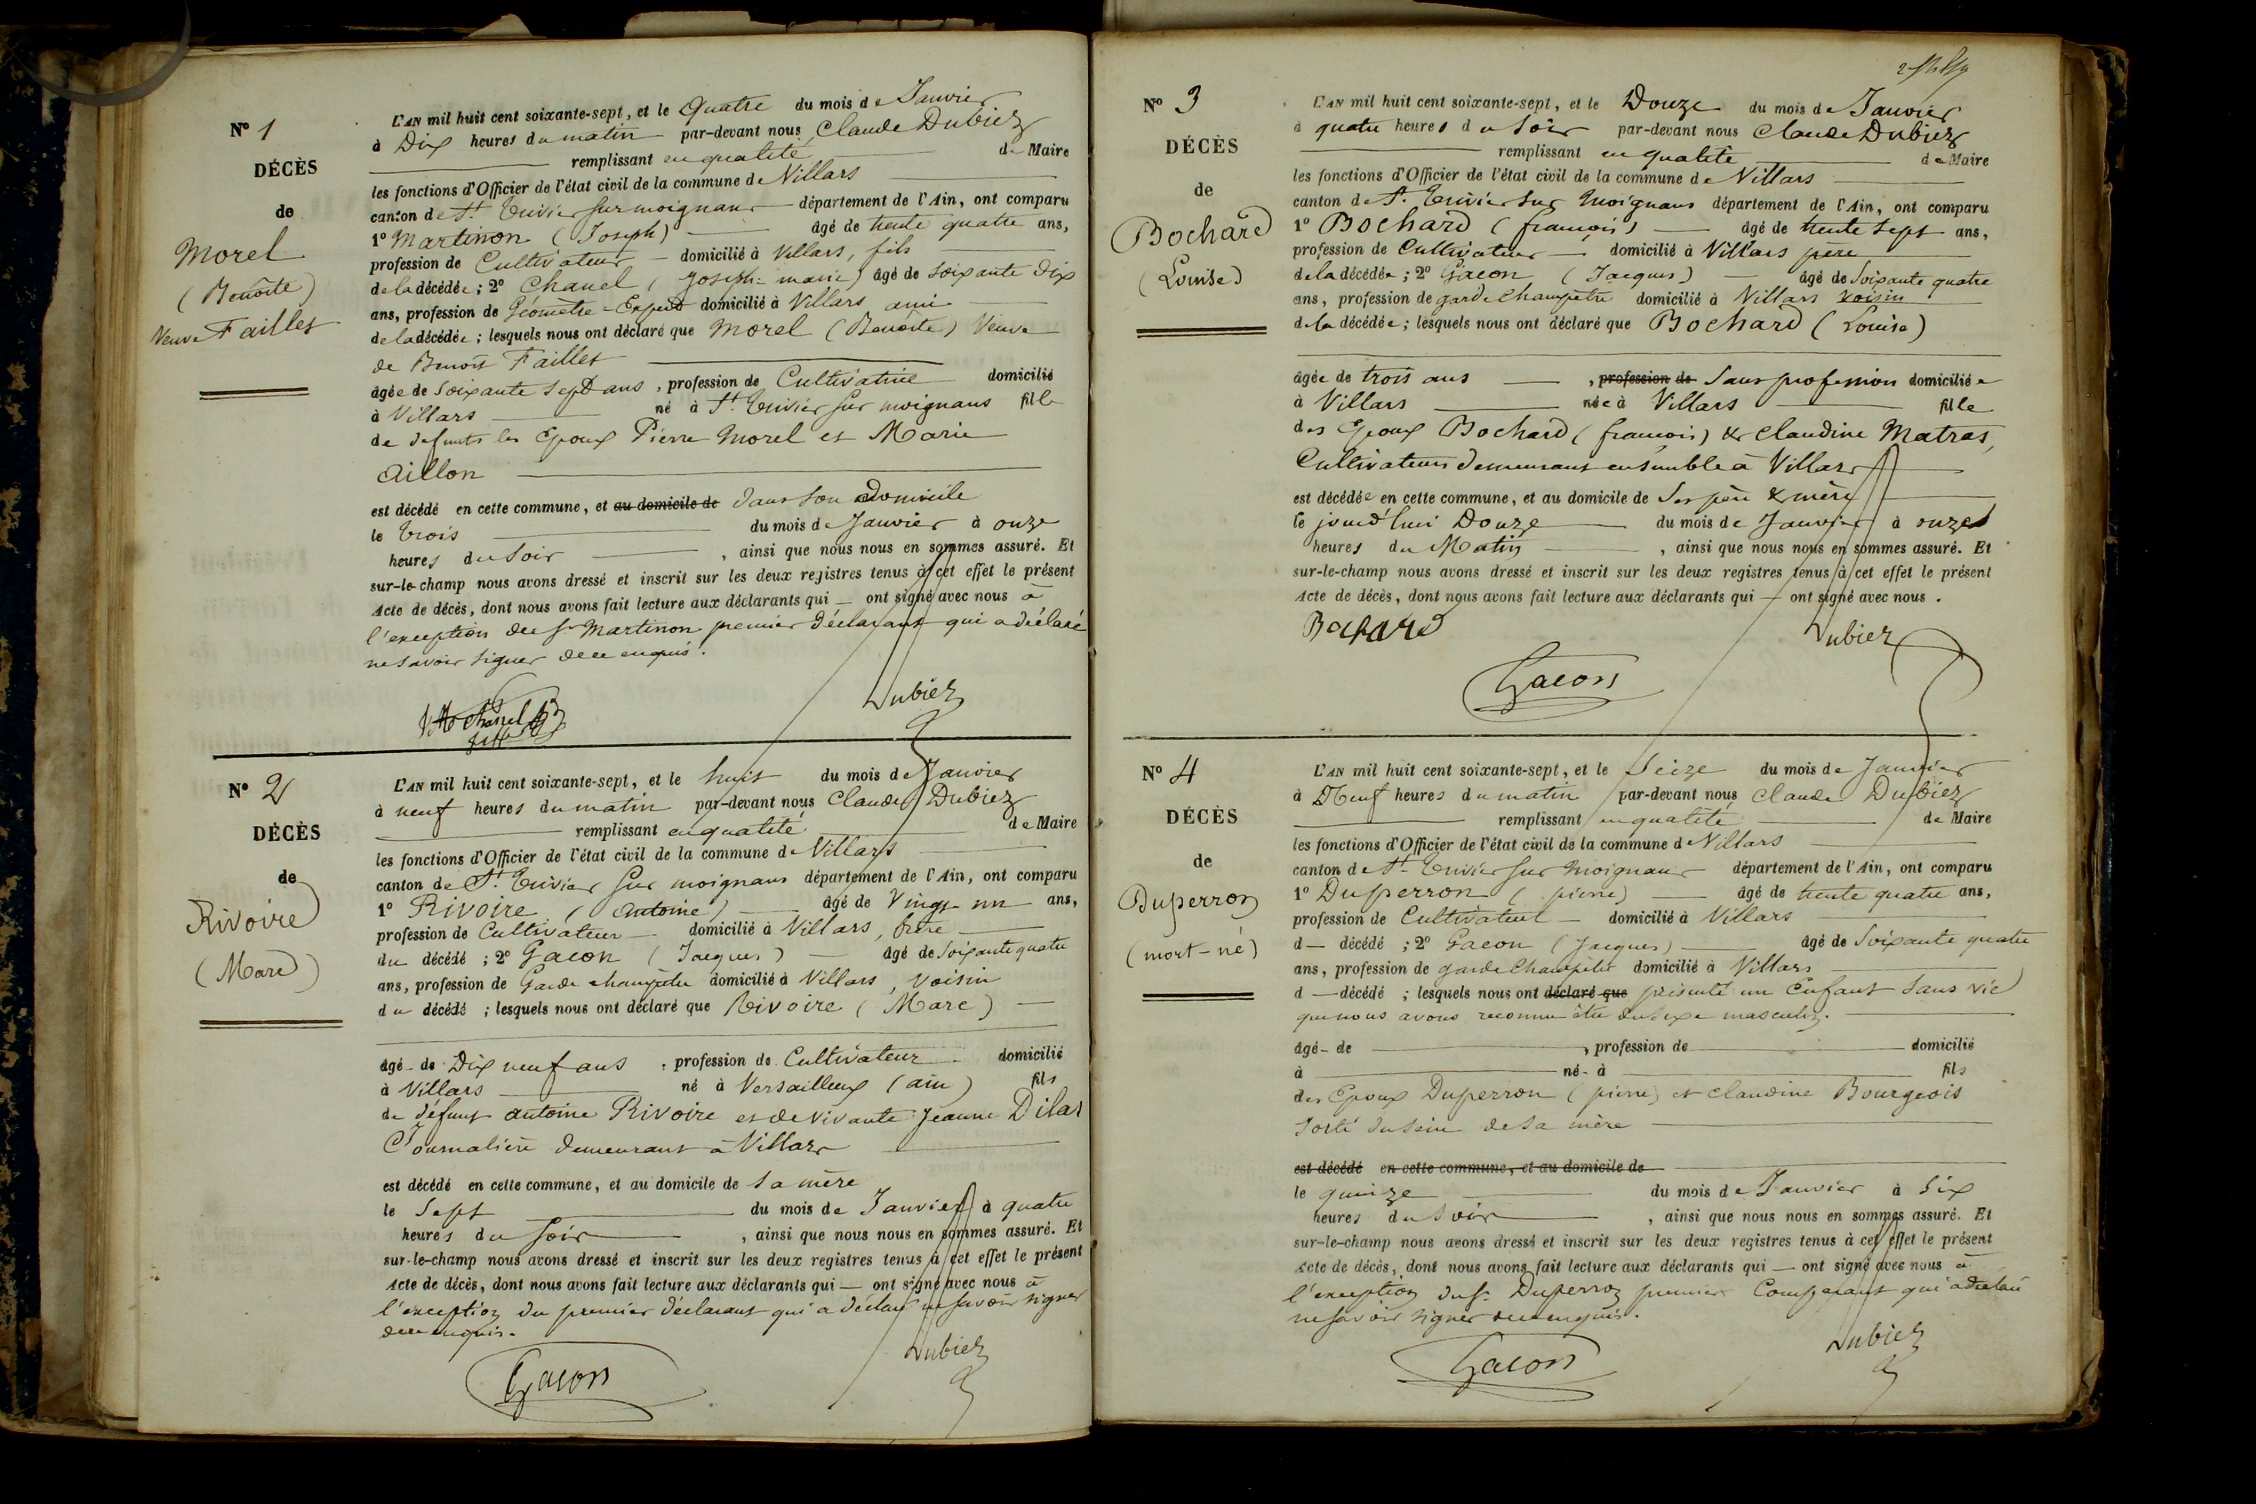 Nº 1
DÉCÈS
de
Morel
(Benoîte)
Veuve Faillet
L'AN mil huit cent soixante-sept, et le Quatre du mois de Janvier
à Dix heures du matin par-devant nous Claude Dubiez
remplissant en qualité de Maire
les fonctions d'Officier de l'état civil de la commune de Villars
canton de St. Trivier sur moignans département de l'Ain, ont comparu
1º Martinon (Joseph) âgé de trente quatre ans,
profession de Cultivateur domicilié à Villars, fils
de la décédée; 2º Chanel (Joseph-marie) âgé de soixante dix
ans, profession de Géomètre-Expert domicilié à Villars ami
de la décédée; lesquels nous ont déclaré que Morel (Benoîte) Veuve
de Benoît Faillet
âgée de soixante sept ans, profession de Cultivatrice domicilié
à Villars né à St. Trivier sur moignans fille
de defunts les Epoux Pierre Morel et Marie
Aillon
est décédé en cette commune, et au domicile de dans son Domicile
le trois du mois de Janvier à onze
heures du soir, ainsi que nous nous en sommes assuré. Et
sur-le-champ nous avons dressé et inscrit sur les deux registres tenus à cet effet le présent
Acte de décès, dont nous avons fait lecture aux déclarants qui — ont signé avec nous à
l'exception du sr Martinon premier déclarant qui a déclaré
ne savoir signer de ce enquis.
Chanel
Dubiez
Nº 2
DÉCÈS
de
Rivoire
(Marc)
L'AN mil huit cent soixante-sept, et le huit du mois de Janvier
à neuf heures du matin par-devant nous Claude Dubiez
remplissant en qualité de Maire
les fonctions d'Officier de l'état civil de la commune de Villars
canton de St. Trivier sur moignans département de l'Ain, ont comparu
1º Rivoire (Antoine) âgé de Vingt un ans,
profession de Cultivateur domicilié à Villars, frère
du décédé; 2º Gacon (Jacques) âgé de Soixante quatre
ans, profession de Garde champêtre domicilié à Villars, voisin
du décédé; lesquels nous ont déclaré que Rivoire (Marc)
âgé de Dix neuf ans, profession de Cultivateur domicilié
à Villars né à Versailleux (ain) fils
de défunt antoine Rivoire et de vivante Jeanne Dilas
Journalière demeurant à Villars
est décédé en cette commune, et au domicile de sa mère
le Sept du mois de Janvier à quatre
heures du soir, ainsi que nous nous en sommes assuré. Et
sur-le-champ nous avons dressé et inscrit sur les deux registres tenus à cet effet le présent
Acte de décès, dont nous avons fait lecture aux déclarants qui — ont signé avec nous à
l'exception du premier déclarant qui a déclaré ne savoir signer
de ce enquis.
Gacon
Dubiez
Nº 3
DÉCÈS
de
Bochard
(Louise)
L'AN mil huit cent soixante-sept, et le Douze du mois de Janvier
à quatre heures du soir par-devant nous Claude Dubiez
remplissant en qualité de Maire
les fonctions d'Officier de l'état civil de la commune de Villars
canton de St. Trivier sur Moignans département de l'Ain, ont comparu
1º Bochard (françois) âgé de trente sept ans,
profession de Cultivateur domicilié à Villars père
de la décédée; 2º Gacon (Jacques) âgé de Soixante quatre
ans, profession de garde champêtre domicilié à Villars voisin
de la décédée; lesquels nous ont déclaré que Bochard (Louise)
âgée de trois ans, profession de Sans profession domiciliée
à Villars née à Villars fille
des Epoux Bochard (françois) & Claudine Matras,
Cultivateurs demeurant ensemble à Villars
est décédée en cette commune, et au domicile de Ses père & mère
le jourd'hui Douze du mois de Janvier à onze
heures du Matin, ainsi que nous nous en sommes assuré. Et
sur-le-champ nous avons dressé et inscrit sur les deux registres tenus à cet effet le présent
Acte de décès, dont nous avons fait lecture aux déclarants qui — ont signé avec nous.
Bochard
Dubiez
Gacon
Nº 4
DÉCÈS
de
Duperron
(mort-né)
L'AN mil huit cent soixante-sept, et le Seize du mois de Janvier
à Neuf heures du matin par-devant nous Claude Dubiez
remplissant en qualité de Maire
les fonctions d'Officier de l'état civil de la commune de Villars
canton de St. Trivier sur Moignans département de l'Ain, ont comparu
1º Duperron (pierre) âgé de trente quatre ans,
profession de Cultivateur domicilié à Villars
d — décédé; 2º Gacon (Jacques) âgé de Soixante quatre
ans, profession de garde champêtre domicilié à Villars
d — décédé; lesquels nous ont déclaré que présenté un Enfant Sans vie
que nous avons reconnu être du sexe masculin.
âgé de, profession de domicilié
à né à fils
des Epoux Duperron (pierre) et Claudine Bourgeois
sorti du sein de sa mère
est décédé en cette commune, et au domicile de
le quinze du mois de Janvier à Six
heures du soir, ainsi que nous nous en sommes assuré. Et
sur-le-champ nous avons dressé et inscrit sur les deux registres tenus à cet effet le présent
Acte de décès, dont nous avons fait lecture aux déclarants qui — ont signé avec nous à
l'exception du sr. Duperron premier Comparant qui a déclaré
ne savoir signer de ce enquis.
Dubiez
Gacon